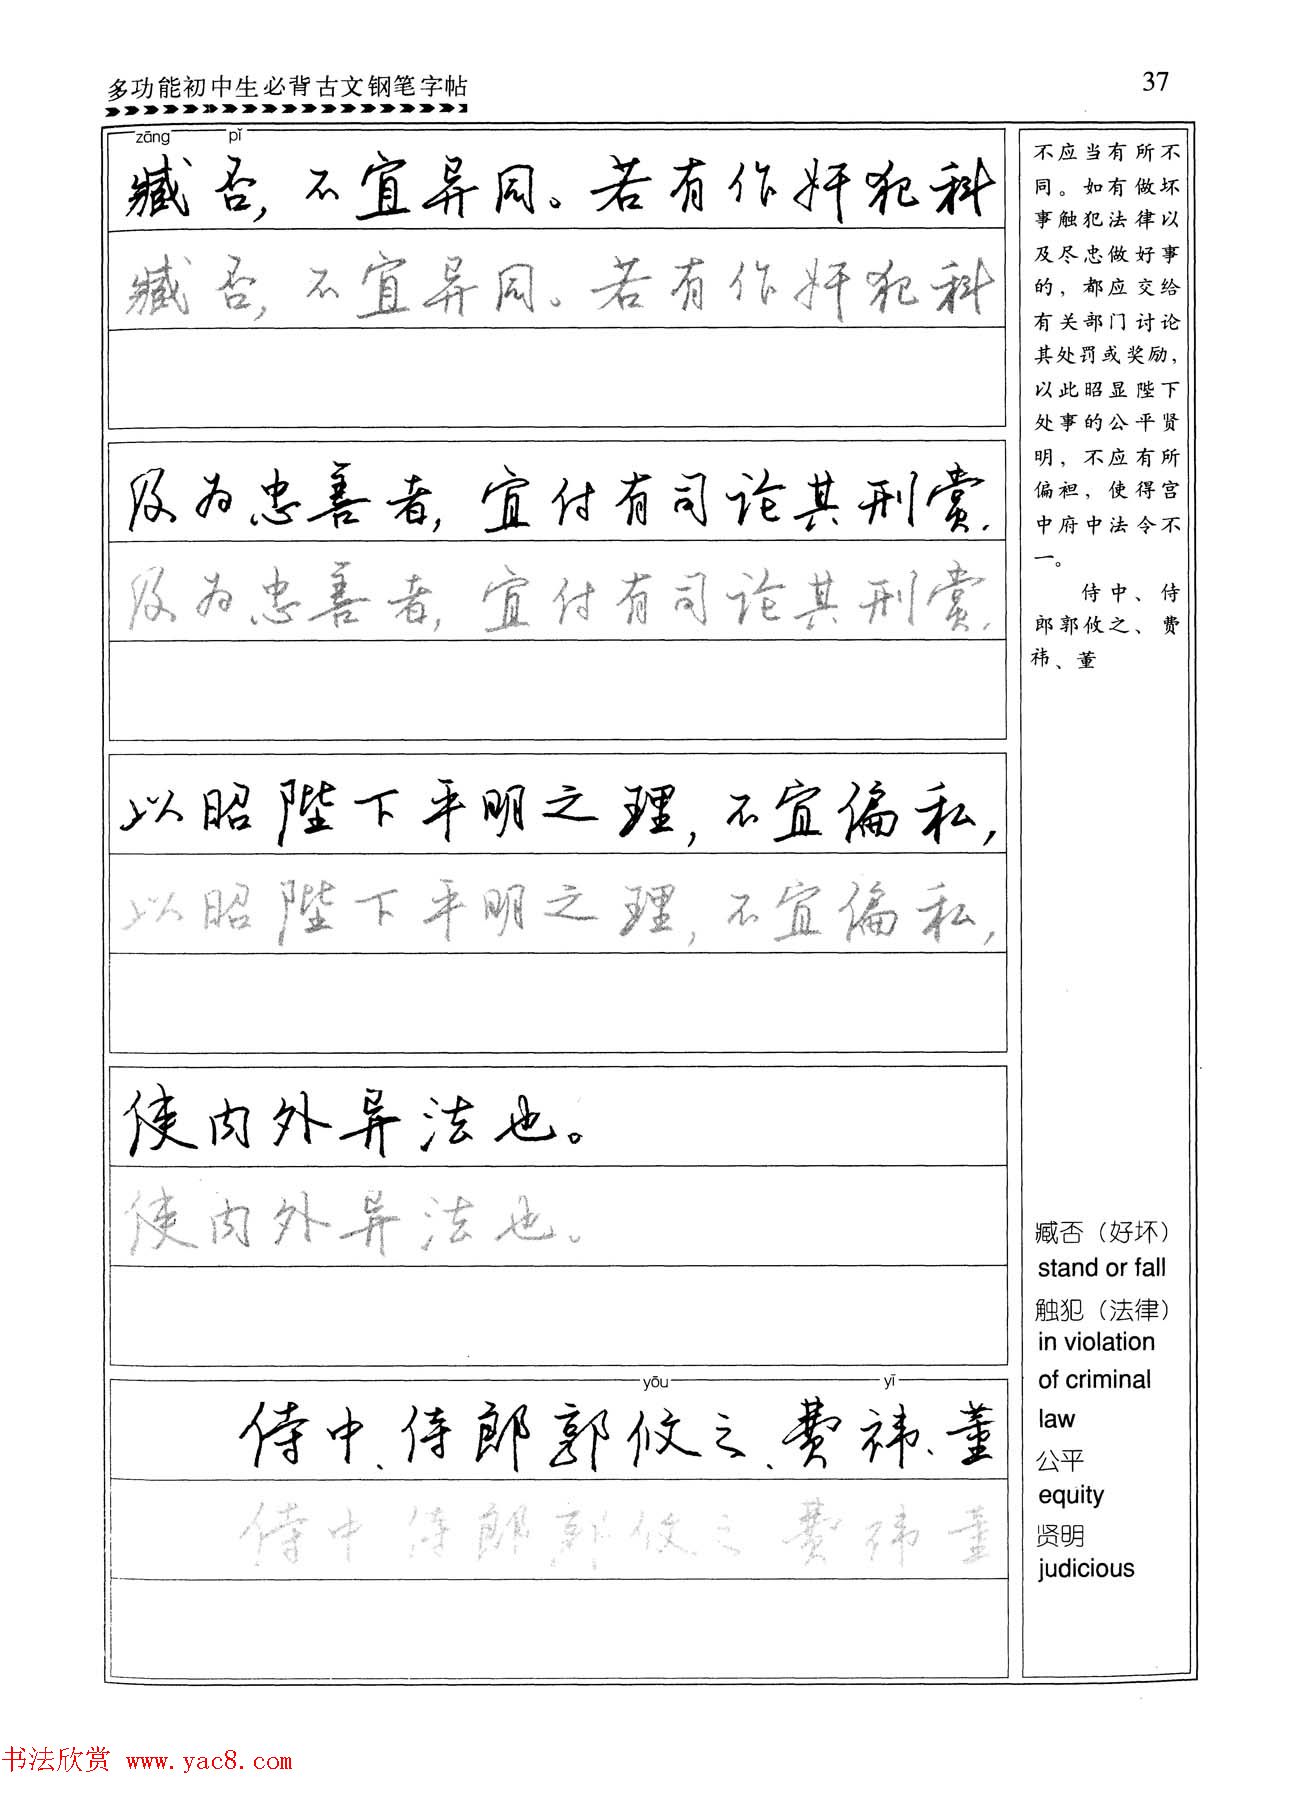 多功能初中生必背古文钢笔字帖
37
zāng pǐ
臧否，不宜异同。若有作奸犯科
臧否，不宜异同。若有作奸犯科
及为忠善者，宜付有司论其刑赏，
及为忠善者，宜付有司论其刑赏，
以昭陛下平明之理，不宜偏私，
以昭陛下平明之理，不宜偏私，
使内外异法也。
使内外异法也。
yōu yī
侍中、侍郎郭攸之、费祎、董
侍中、侍郎郭攸之、费祎、董
不应当有所不
同。如有做坏
事触犯法律以
及尽忠做好事
的，都应交给
有关部门讨论
其处罚或奖励，
以此昭显陛下
处事的公平贤
明，不应有所
偏袒，使得宫
中府中法令不
一。
侍中、侍
郎郭攸之、费
祎、董
臧否（好坏）
stand or fall
触犯（法律）
in violation
of criminal
law
公平
equity
贤明
judicious
书法欣赏 www.yac8.com